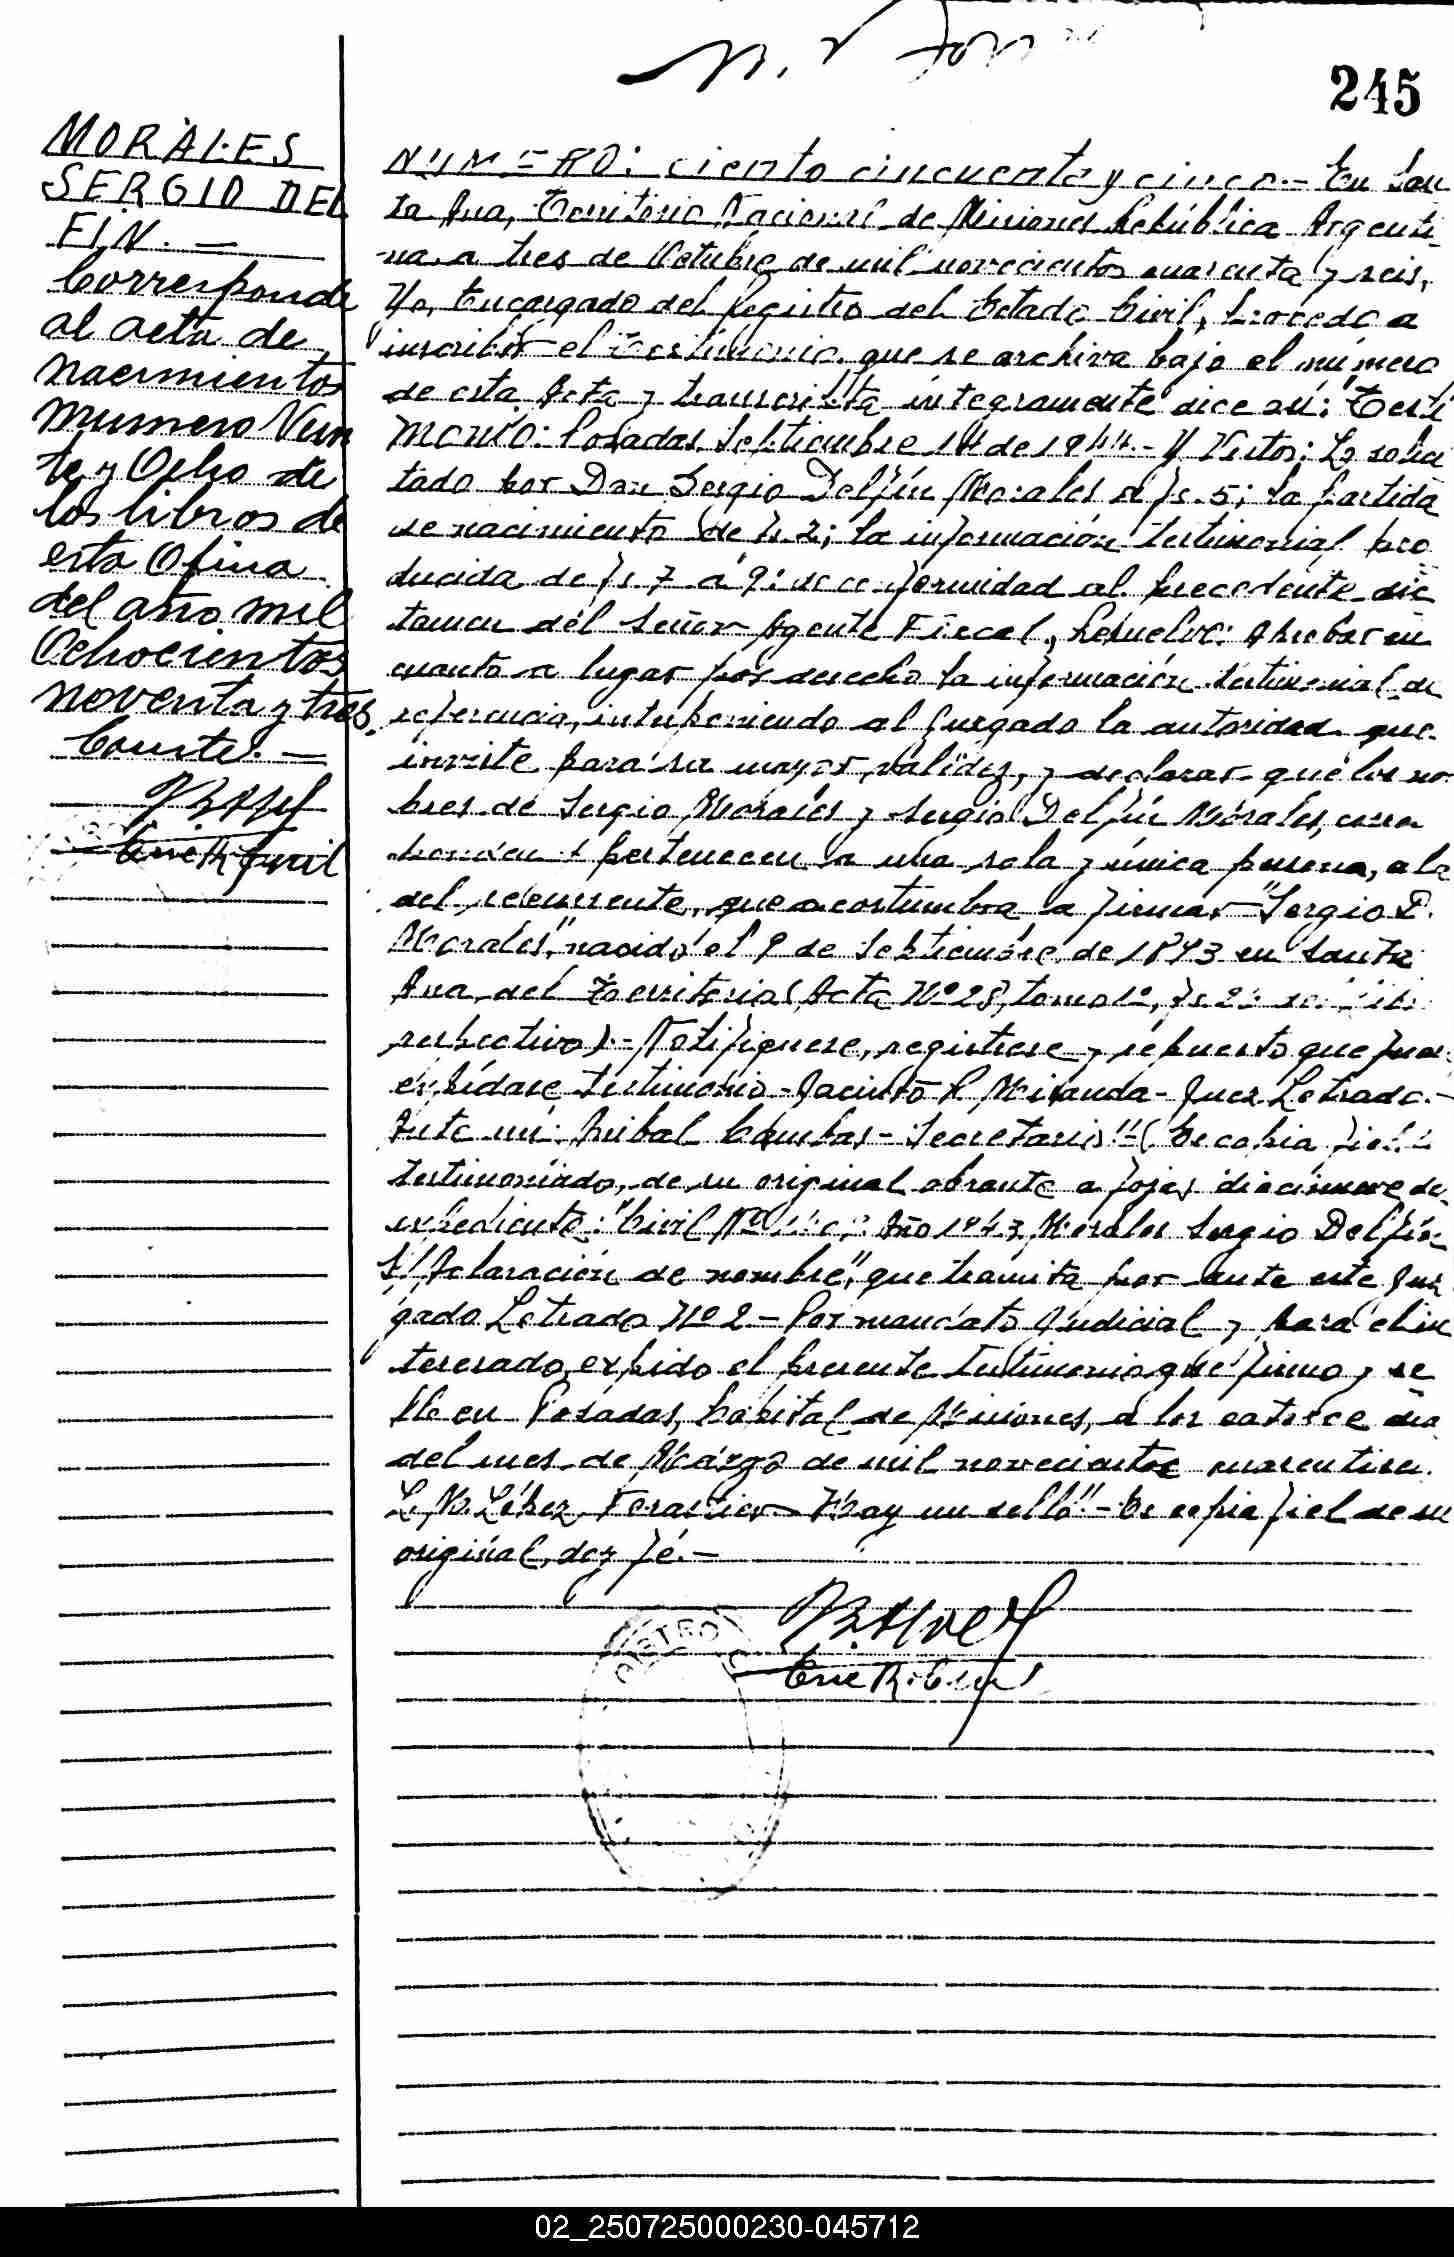 245
MORALES
SERGIO DEL
FIN. —
Corresponde
al acta de
nacimientos
numero Vein
te y Ocho de
los libros de
esta Ofina
del año mil
Ochocientos
noventa y tres.
Conste. —
NUMERO: ciento cincuenta y cinco.- En San
ta Ana, Territorio Nacional de Misiones República Argenti-
na, a tres de Octubre de mil novecientos cuarenta y seis,
Yo, Encargado del Registro del Estado Civil, procedo a
inscribir el Testimonio que se archiva bajo el número
de esta Acta y transcripta íntegramente dice así: Testi
monio: Posadas, Septiembre 14 de 1944.- Y Vistos: Lo solici
tado por Don Sergio Delfín Morales a fs. 5; la partida
de nacimiento de fs. 2; la información testimonial pro
ducida de fs. 7 a 9: de conformidad al precedente dic
tamen del Señor Agente Fiscal, Resuelvo: Aprobar en
cuanto a lugar por derecho la información testimonial de
referencia, interponiendo al Juzgado la autoridad que
inviste para su mayor validez, y declarar que los no
bres de Sergio Morales y Sergio Delfín Morales, corres
ponden y pertenecen a una sola y única persona, a la
del recurrente, que acostumbra a firmar "Sergio D.
Morales," nacido el 9 de Septiembre de 1893 en Santa
Ana del Territorio (Acta Nº 28, tomo 1º, fs.
respectivo).- Notifíquese, regístrese y repuesto que fuer
expídase testimonio - Jacinto R. Miranda - Juez Letrado.-
Ante mí: Anibal Cambas - Secretario" - (Es copia fiel
testimoniado, de su original obrante a fojas diecinueve de
expediente: "Civil Nº Año 1943, Morales Sergio Delfín
S/ Aclaración de nombre", que tramita por ante este Juz
gado Letrado Nº 2 - Por mandato Judicial y para el in
teresado, expido el presente Testimonio que firmo y se
llo en Posadas, Capital de Misiones, a los catorce día
del mes de Marzo de mil novecientos
L. N. López Hay un sello" - Es copia fiel de su
original, doy fé.-
02_250725000230-045712